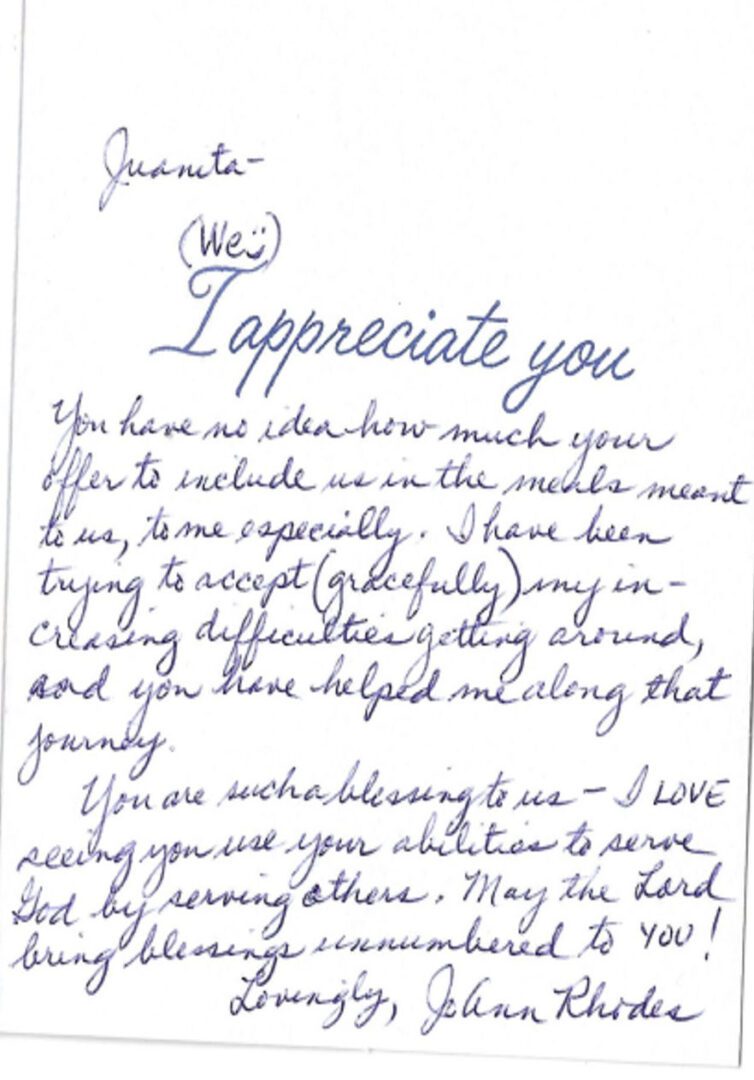 Juanita-
(We :))
I appreciate you
You have no idea how much your
offer to include us in the meals meant
to us, to me especially. I have been
trying to accept (gracefully) my in-
creasing difficulties getting around,
and you have helped me along that
journey.
You are such a blessing to us - I LOVE
seeing you use your abilities to serve
God by serving others. May the Lord
bring blessings unnumbered to YOU!
Lovingly, JoAnn Rhodes